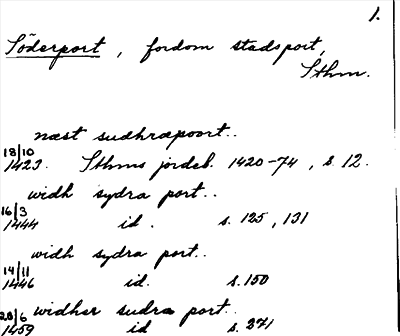 1.
Söderport, fordom stadsport,
Sthm.
næst sudhræpoort..
18/10
1423. Sthms jordeb. 1420-74, s. 12.
widh sydra port..
16/3
1444 id. s. 125, 131
widh sydra port..
14/11
1446 id. s. 150
widher sudra port..
28/6
1459 id s. 271